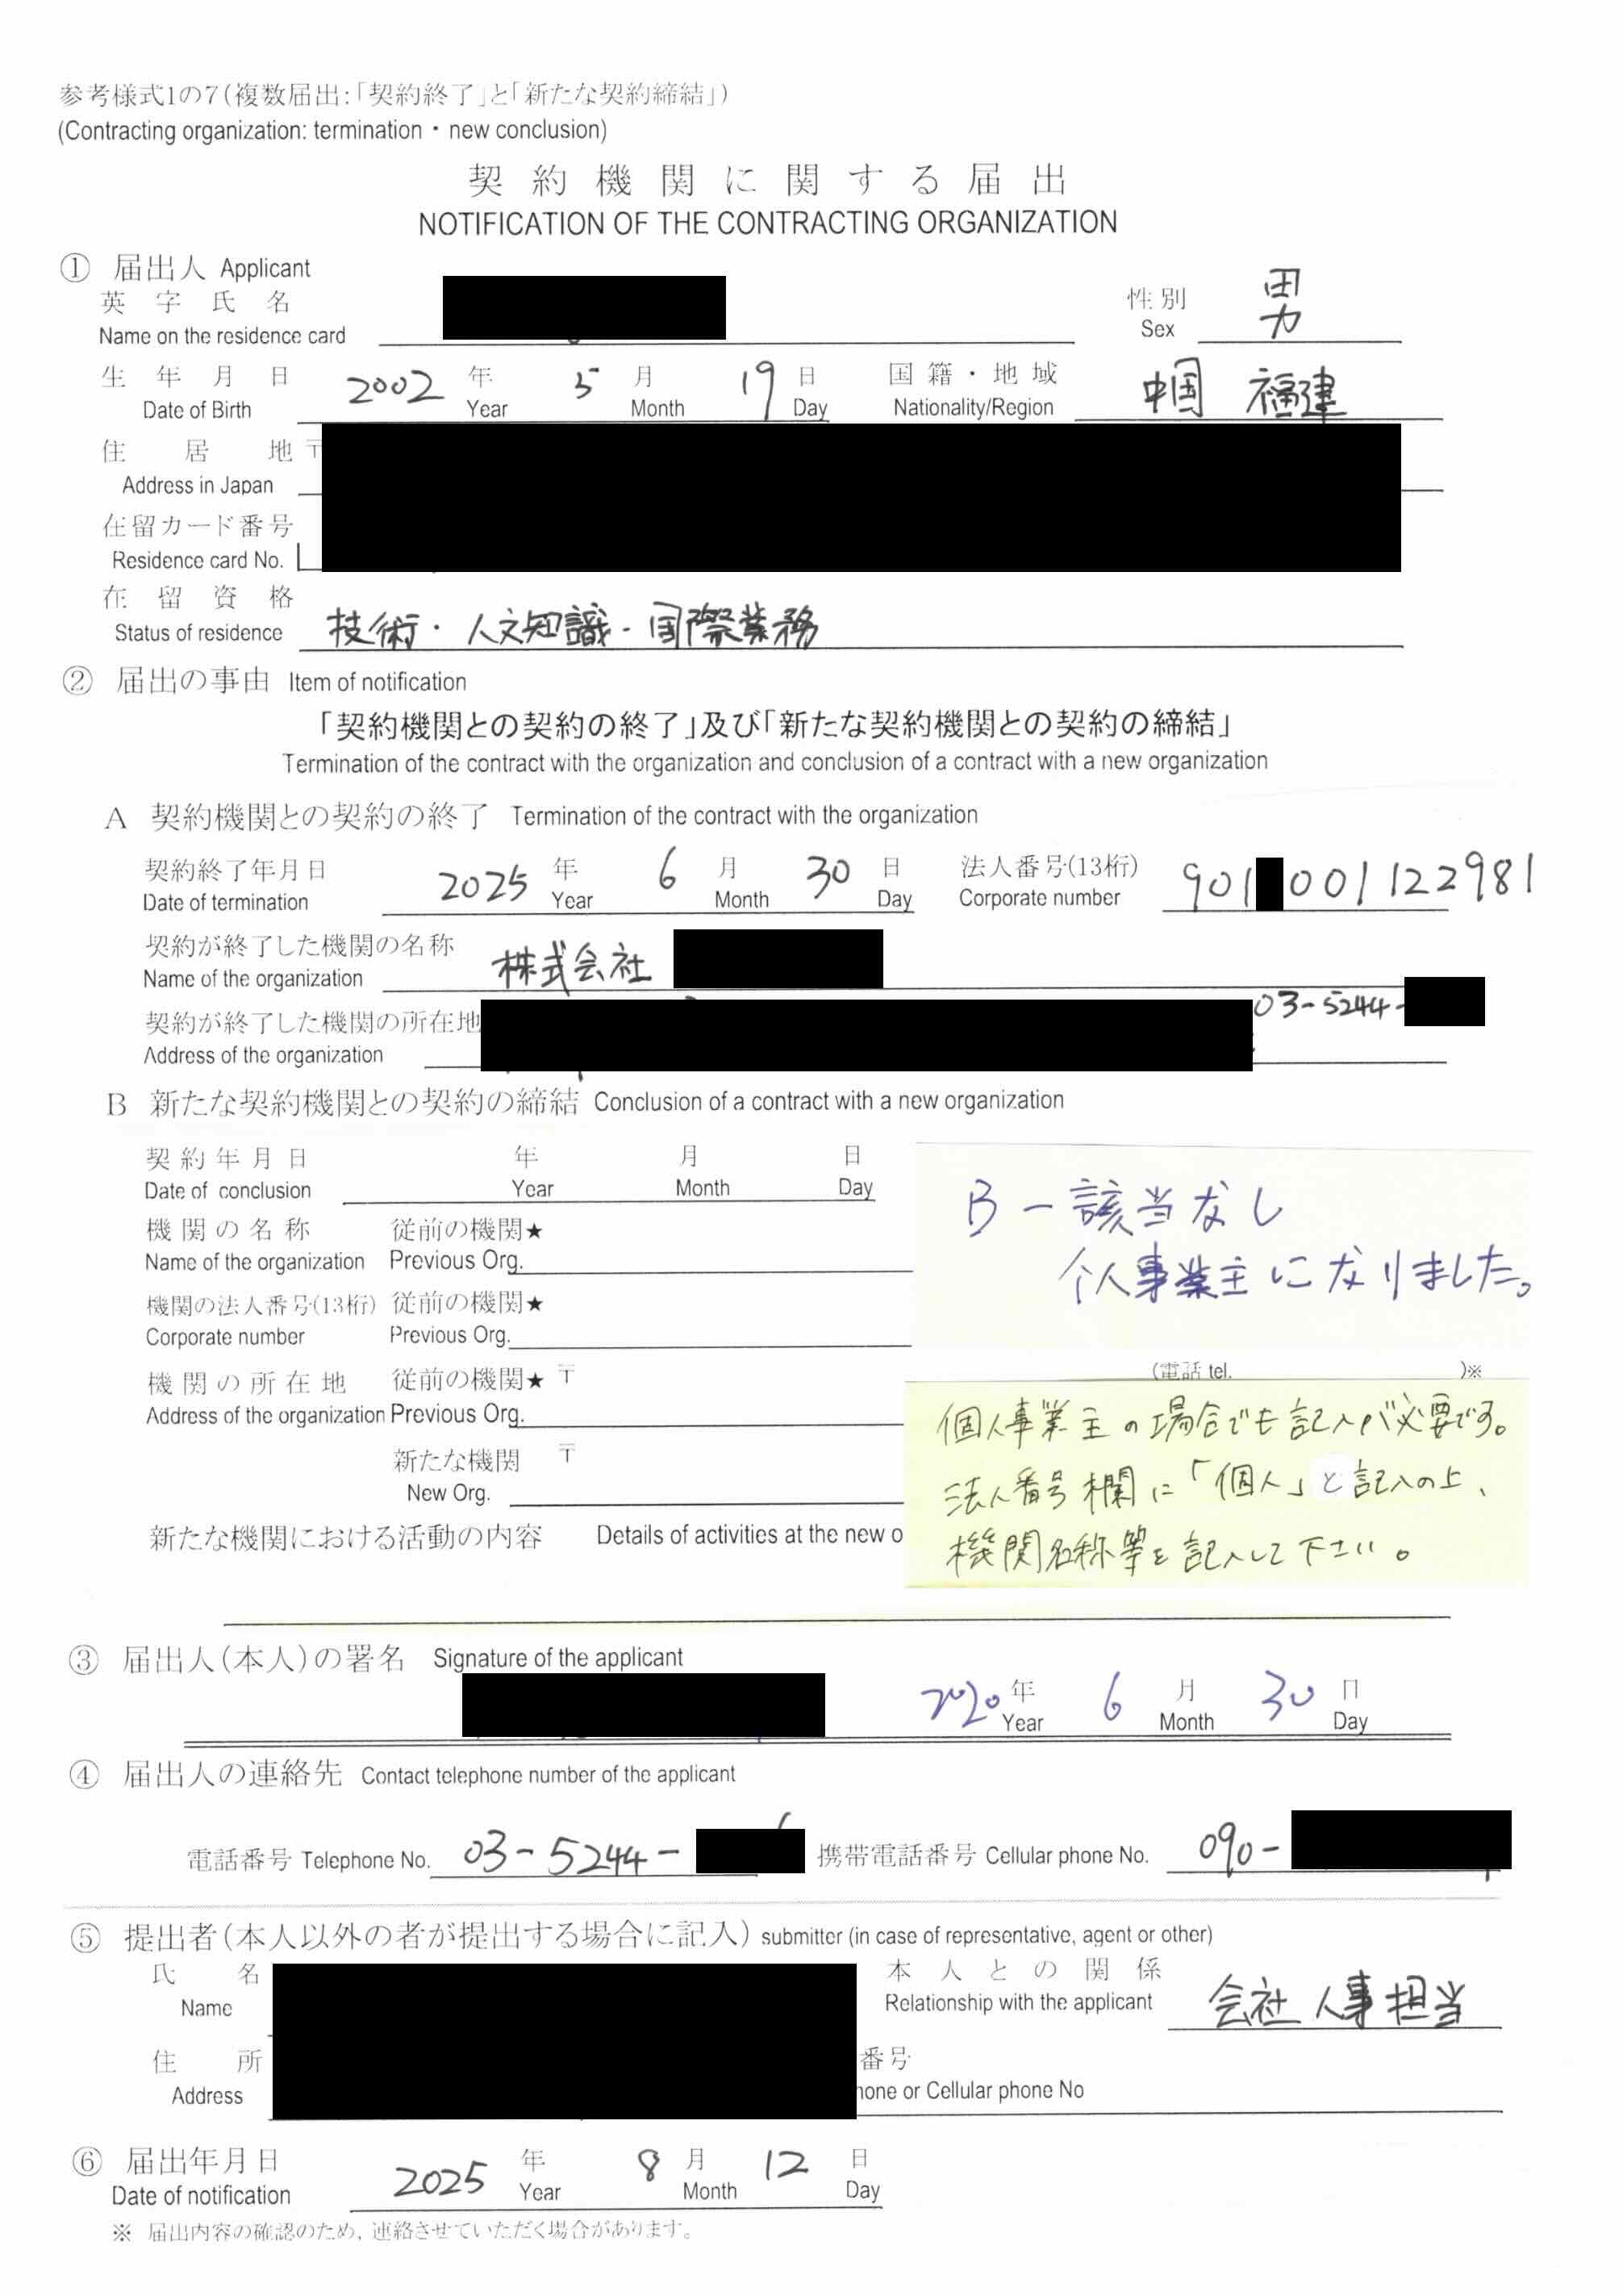 参考様式1の7(複数届出:「契約終了」と「新たな契約締結」)
(Contracting organization: termination・new conclusion)
契約機関に関する届出
NOTIFICATION OF THE CONTRACTING ORGANIZATION
① 届出人 Applicant
英字氏名
Name on the residence card
性別 男
Sex
生年月日 2002 年 5 月 19 日 国籍・地域 中国 福建
Date of Birth Year Month Day Nationality/Region
住居地 〒
Address in Japan
在留カード番号
Residence card No.
在留資格 技術・人文知識・国際業務
Status of residence
② 届出の事由 Item of notification
「契約機関との契約の終了」及び「新たな契約機関との契約の締結」
Termination of the contract with the organization and conclusion of a contract with a new organization
A 契約機関との契約の終了 Termination of the contract with the organization
契約終了年月日 2025 年 6 月 30 日 法人番号(13桁) 901 001122981
Date of termination Year Month Day Corporate number
契約が終了した機関の名称 株式会社
Name of the organization
契約が終了した機関の所在地 03-5244-
Address of the organization
B 新たな契約機関との契約の締結 Conclusion of a contract with a new organization
契約年月日 年 月 日
Date of conclusion Year Month Day
B-該当なし
個人事業主になりました。
機関の名称 従前の機関★
Name of the organization Previous Org.
機関の法人番号(13桁) 従前の機関★
Corporate number Previous Org.
(電話 tel. )※
機関の所在地 従前の機関★ 〒
Address of the organization Previous Org.
新たな機関 〒
New Org.
個人事業主の場合でも記入が必要です。
法人番号欄に「個人」と記入の上、
機関名称等を記入して下さい。
新たな機関における活動の内容 Details of activities at the new o
③ 届出人(本人)の署名 Signature of the applicant
2020 年 6 月 30 日
Year Month Day
④ 届出人の連絡先 Contact telephone number of the applicant
電話番号 Telephone No. 03-5244- 携帯電話番号 Cellular phone No. 090-
⑤ 提出者(本人以外の者が提出する場合に記入) submitter (in case of representative, agent or other)
氏名 本人との関係 会社 人事担当
Name Relationship with the applicant
住所 番号
Address hone or Cellular phone No
⑥ 届出年月日 2025 年 8 月 12 日
Date of notification Year Month Day
※ 届出内容の確認のため,連絡させていただく場合があります。